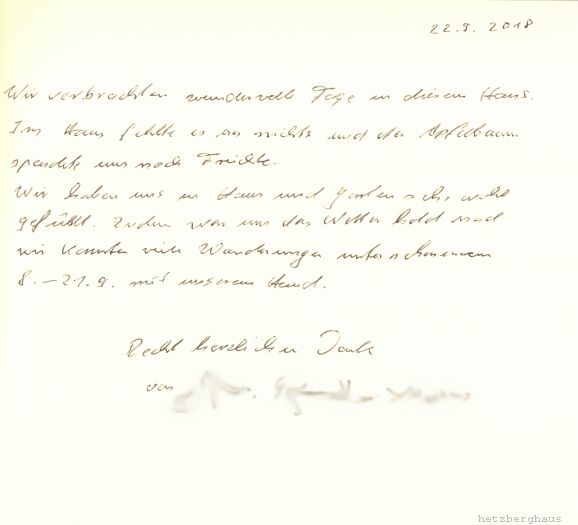 22.9. 2018
Wir verbrachten wundervolle Tage in diesem Haus.
Im Haus fehlte es an nichts und der Apfelbaum
spendete uns noch Früchte.
Wir haben uns in Haus und Garten sehr wohl
gefühlt. Zudem war uns das Wetter hold und
wir konnten viele Wanderungen unternehmen
8. – 21.9. mit unserem Hund.
Recht herzlichen Dank
von
hetzberghaus